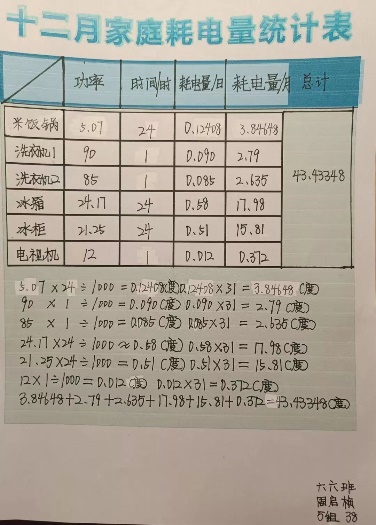 十二月家庭耗电量统计表
功率 时间/时 耗电量/日 耗电量/月 总计
米饭锅 5.07 24 0.12408 3.84648
洗衣机1 90 1 0.090 2.79
洗衣机2 85 1 0.085 2.635 43.43348
冰箱 24.17 24 0.58 17.98
冰柜 21.25 24 0.51 15.81
电视机 12 1 0.012 0.372
5.07×24÷1000=0.12408(度) 0.12408×31=3.84648(度)
90×1÷1000=0.090(度) 0.090×31=2.79(度)
85×1÷1000=0.085(度) 0.085×31=2.635(度)
24.17×24÷1000≈0.58(度) 0.58×31=17.98(度)
21.25×24÷1000=0.51(度) 0.51×31=15.81(度)
12×1÷1000=0.012(度) 0.012×31=0.372(度)
3.84648+2.79+2.635+17.98+15.81+0.372=43.43348(度)
六六班
周启
5组 38